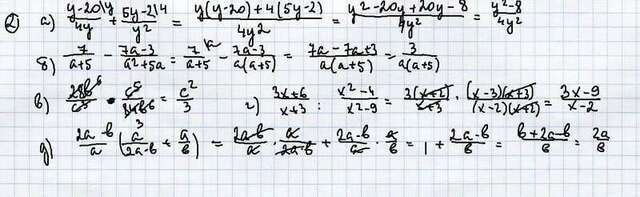 2) а) (y-20)/4y + (5y-2)/y² = (y(y-20)+4(5y-2))/4y² = (y²-20y+20y-8)/4y² = (y²-8)/4y²
б) 7/(a+5) - (7a-3)/(a²+5a) = 7/(a+5) - (7a-3)/(a(a+5)) = (7a-7a+3)/(a(a+5)) = 3/(a(a+5))
в) = c²/3 г) (3x+6)/(x+3) : (x²-4)/(x²-9) = 3(x+2)/(x+3) · (x-3)(x+3)/((x-2)(x+2)) = (3x-9)/(x-2)
д) (2a-b)/a (a/(2a-b) + a/b) = (2a-b)/a · a/(2a-b) + (2a-b)/a · a/b = 1 + (2a-b)/b = (b+2a-b)/b = 2a/b